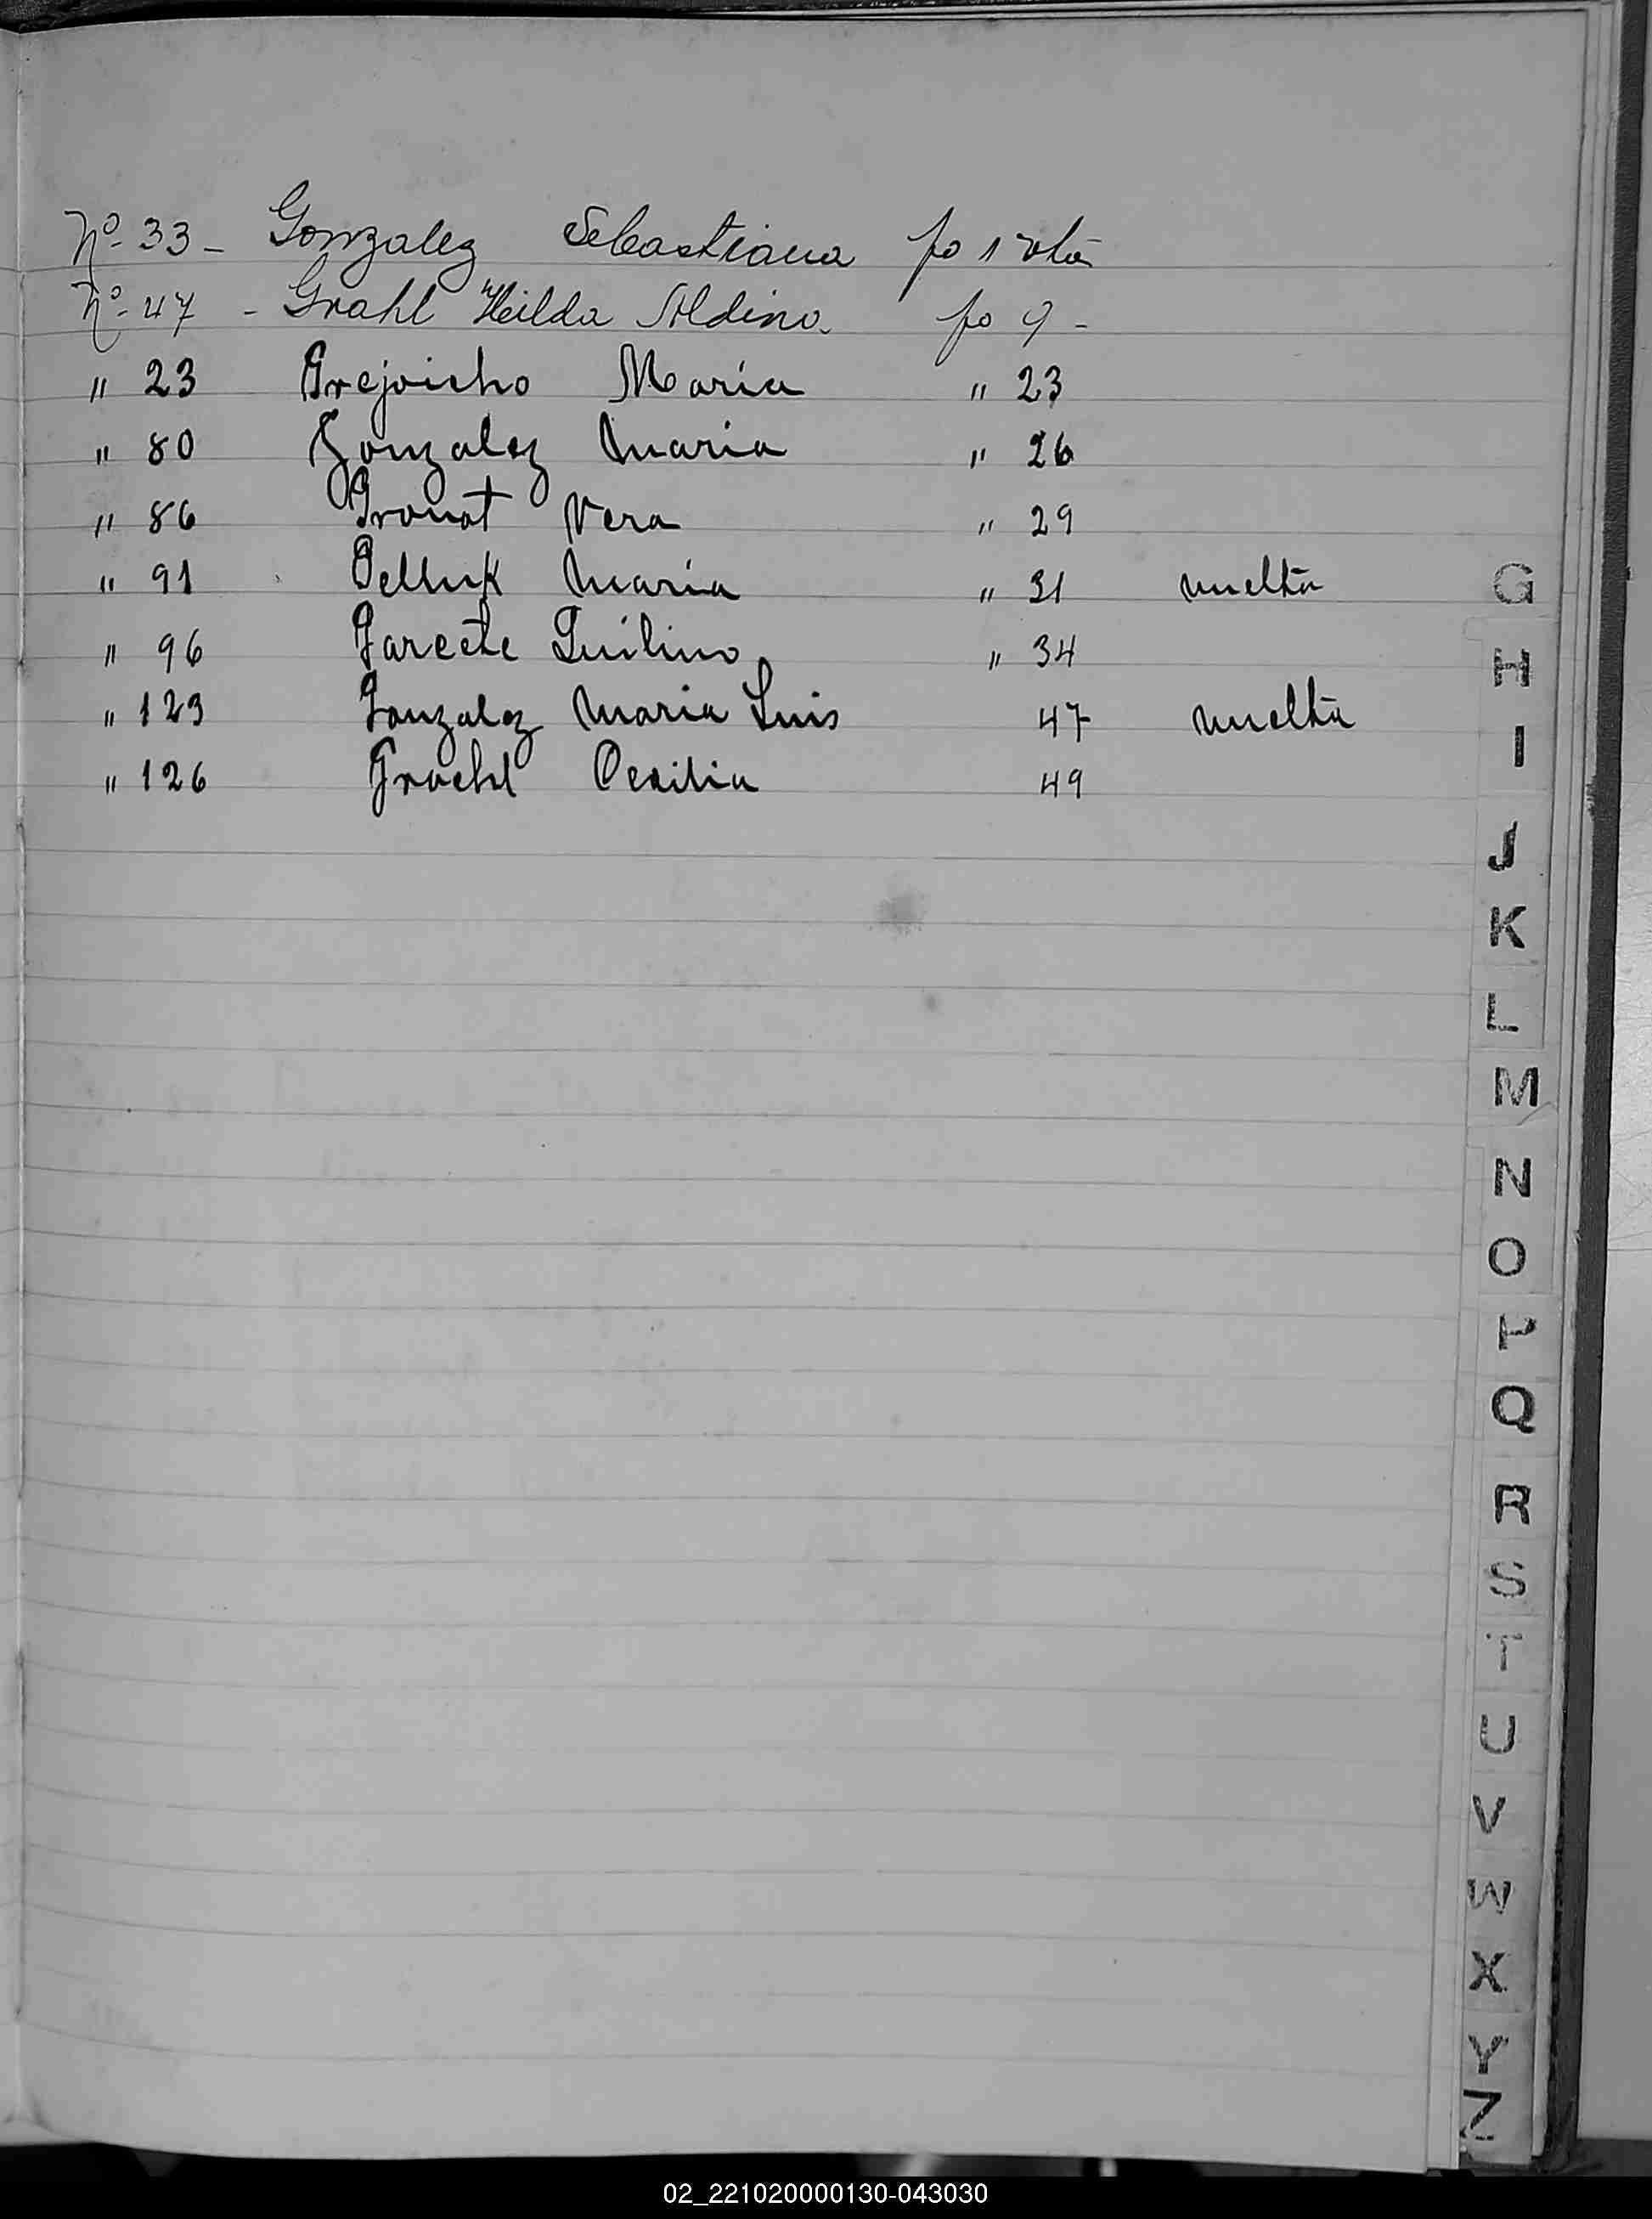 Nº 33 - Gonzalez Sebastiana fo 1 vta
Nº 47 - Grahl Heilda Aldino. fo 9 -
" 23 María " 23
" 80 Gonzalez Maria " 26
" 86 Gronat Vera " 29
" 91 Maria " 31 vuelta
" 96 Garcete " 34
" 123 Gonzalez Maria Luis 47 vuelta
" 126 Groehl Cecilia 49
G
H
I
J
K
L
M
N
O
P
Q
R
S
T
U
V
W
X
Y
Z
02_221020000130-043030